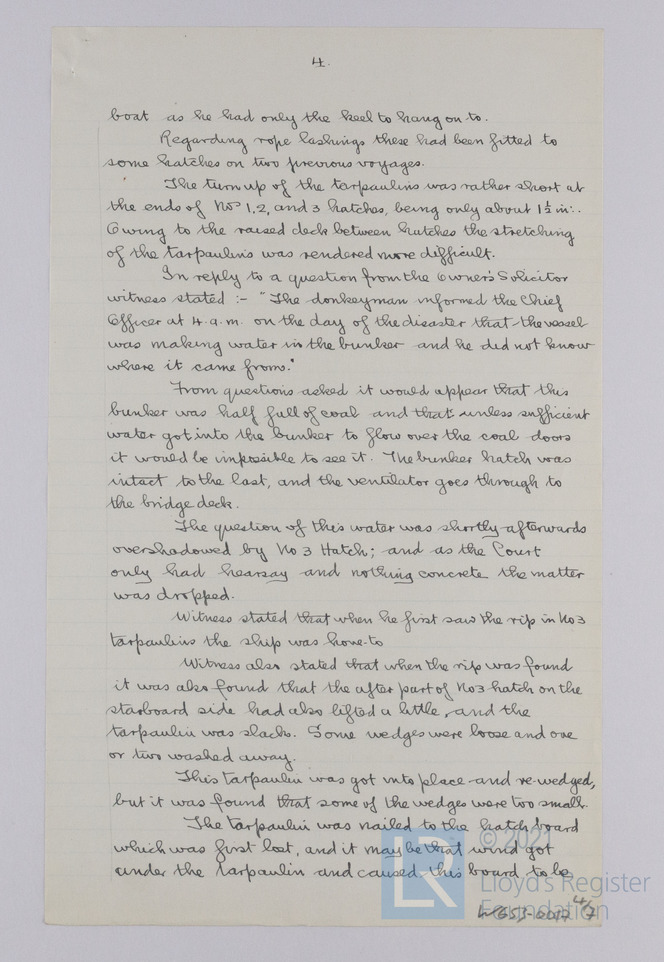 4.
boat as he had only the keel to hang on to.
Regarding rope lashings these had been fitted to
some hatches on two previous voyages.
The turn up of the tarpaulins was rather short at
the ends of Nos 1, 2, and 3 hatches, being only about 1½ in:.
Owing to the raised deck between hatches the stretching
of the tarpaulins was rendered more difficult.
In reply to a question from the Owner's Solicitor
witness stated :- "The donkeyman informed the Chief
Officer at 4. a.m. on the day of the disaster that the vessel
was making water in the bunker and he did not know
where it came from."
From questions asked it would appear that this
bunker was half full of coal and that unless sufficient
water got into the bunker to flow over the coal doors
it would be impossible to see it. The bunker hatch was
intact to the last, and the ventilator goes through to
the bridge deck.
The question of this water was shortly afterwards
overshadowed by No 3 Hatch; and as the Court
only had hearsay and nothing concrete the matter
was dropped.
Witness stated that when he first saw the rip in No 3
tarpaulins the ship was hove-to
Witness also stated that when the rip was found
it was also found that the after part of No 3 hatch on the
starboard side had also lifted a little, and the
tarpaulin was slack. Some wedges were loose and one
or two washed away.
This tarpaulin was got into place and re-wedged,
but it was found that some of the wedges were too small.
The tarpaulin was nailed to the hatch board
which was first lost, and it may be that wind got
under the tarpaulin and caused this board to be
© 2021
LR
Lloyd's Register
Foundation
W653-0017 4/7